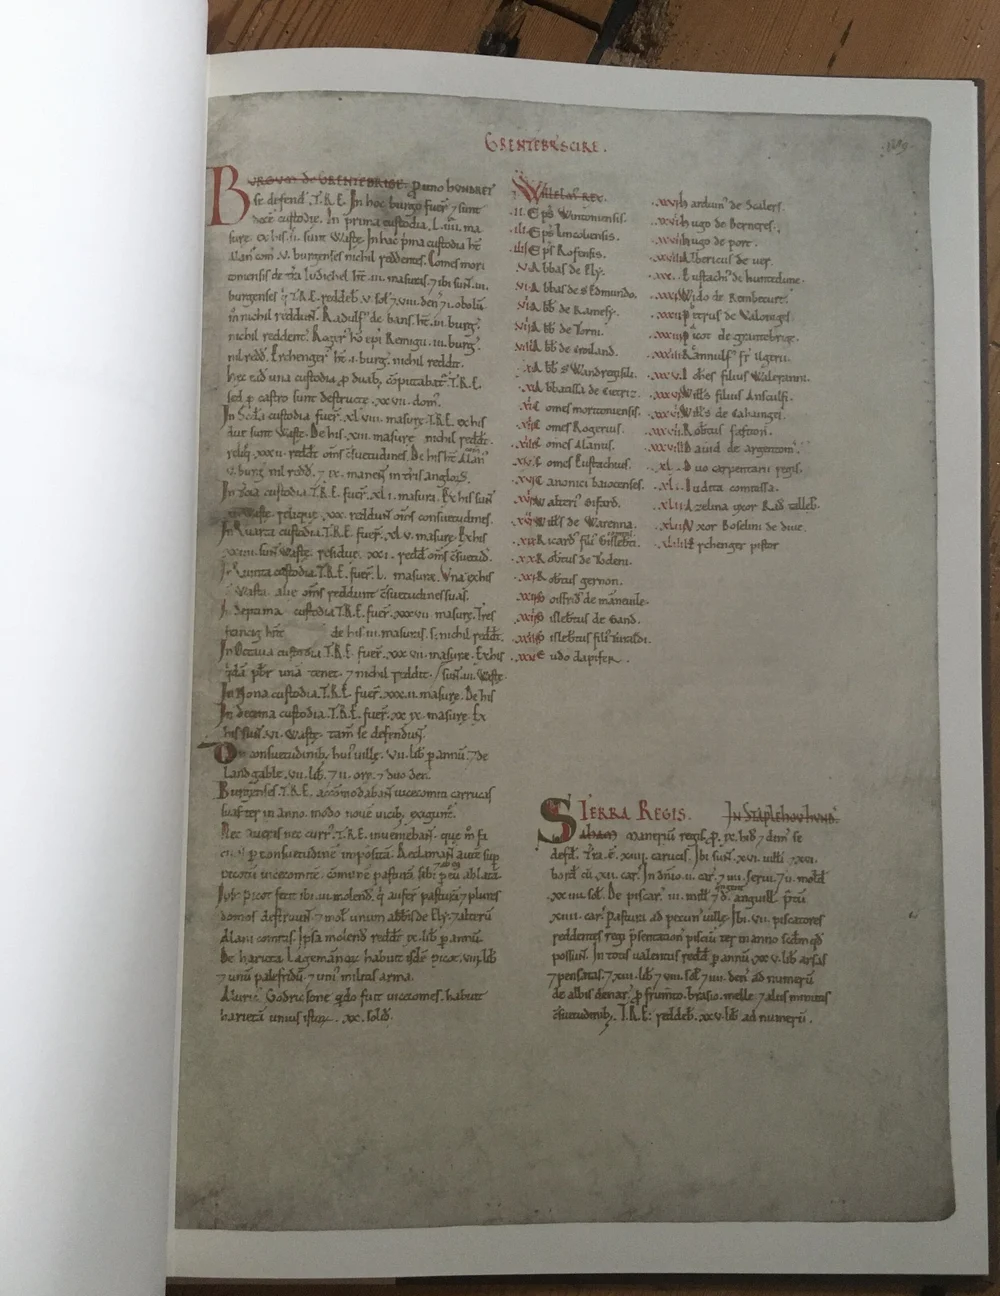 GRENTEBR'SCIRE.
189.
BURGUM de GRENTEBRIGE. p uno HUNDRET
se defend' .T.R.E. In hoc burgo fuer' 7 sunt
dece custodie. In prima custodia .L.IIII. ma
sure. ex his .II. sunt Waste. In hac p'ma custodia ht
Alan' com' .V. burgenses nichil reddentes. Comes mori
toniensis de t'ra Iudichel ht .III. masuras. 7 ibi sunt .III.
burgenses q' T.R.E. reddeb' .V. sol' 7 VIII. den' 7 I. obolu'
m° nichil reddun'. Radulf' de bans ht .III. burg'.
nichil reddent'. Roger' ho' ep'i Remigii .III. burg'.
nil redd'. Erchenger' ht .I. burg' nichil reddit.
hec ead' una custodia p duab; computabat' .T.R.E.
sed p castro sunt destructe .XXVII. dom'.
In Scd'a custodia fuer' .XLVIII. masure .T.R.E. ex his
due sunt Waste. De his .XIII. masure nichil reddt'.
reliq' .XXXII. reddt' om's c'suetudines. De his ht Alan'
.V. burg' nil redd'. 7 IX. manen' in t'ris anglor'.
In t'cia custodia .T.R.E. fuer' .XLI. masura. Ex his sun'
Waste. relique .XXX. reddun' om's consuetudines.
In Quarta custodia .T.R.E. fuer' .XLV. masure. Ex his
.XXIIII. sun' Waste. residue .XXI. redd' om's c'suetud'.
In Quinta custodia .T.R.E. fuer' .L. masure. Una ex his
Wasta. alie om's reddunt c'suetudines suas.
In septima custodia .T.R.E. fuer' .XXXVII. masure. Tres
francig' hnt de his .III. masuras. s; nichil reddt'.
In Octaua custodia .T.R.E. fuer' .XXXVII. masure. Ex his
q'da' p'br una' tenet. 7 nichil reddit. / sun' .III. Waste.
In Nona custodia .T.R.E. fuer' .XXXII. masure. De his
In decima custodia .T.R.E. fuer' .XXIX. masure. Ex
his sun' .VI. Waste. tam' se defendun'.
De consuetudinib; hui' uille .VII. lib' p annu'. 7 de
Landgable .VII. lib' 7 II. ore. 7 duo den'.
Burgenses .T.R.E. accomodaban' uicecomiti carrucas
suas ter in anno. modo noue' uicib; exigunt'.
Nec aueras nec curr' .T.R.E. inueniebant. que m° fa
ciunt p consuetudine' imposita'. Reclaman' aute' sup
picotu' uicecomite' comune' pastura' sibi p eu' ablata'.
Ipse picot fecit ibi .III. molend'. q' aufer' pastura' 7 plures
domos destruun'. 7 mol' unum abb'is de Ely. 7 alteru'
Alani comitis. Ipsa molend' reddt' .IX. lib' p annu'.
De harieta Lagemanor' habuit isde' picot .VIII. lib'
7 unu' palefridu'. 7 uni' militis arma.
Aluric' Godricsone q'do fuit uicecomes. habuit
harieta' unius istor' .XX. solid'.
WILLELM' REX.
.II. Ep's Wintoniensis.
.III. Ep's Lincoliensis.
.IIII. Ep's Rofensis.
.V. Abbas de Ely.
.VI. Abbas de S' Edmundo.
.VII. Abb' de Ramesy.
.VIII. Abb' de Torni.
.IX. Abb' de Cruiland.
.X. Abb' S' Wandregisili.
.XI. Abbatissa de Cietriz.
.XII. Comes moritoniensis.
.XIII. Comes Rogerius.
.XIIII. Comes Alanus.
.XV. Comes Eustachius.
.XVI. Canonici baiocenses.
.XVII. Walteri' Gifard.
.XVIII. Will's de Warenna.
.XIX. Ricard' fili' Gisleb'ti.
.XX. Robtus de Todeni.
.XXI. Robtus gernon.
.XXII. Goisfrid' de maneuile.
.XXIII. Gislebtus de Gand.
.XXIIII. Gislebtus fili' turaldi.
.XXV. Eudo dapifer.
.XXVI. hardum' de Scalers.
.XXVII. hugo de Berneres.
.XXVIII. hugo de port.
.XXIX. Albericus de uer.
.XXX. Eustachi' de huntedune.
.XXXI. Wido de Rembecurt.
.XXXII. Petrus de Valonges.
.XXXIII. Picot de grantebrige.
.XXXIIII. Rannulf' fr' Ilgerii.
.XXXV. Iohes filius Waleranni.
.XXXVI. Will's filius Ansculfi.
.XXXVII. Will's de Cahainges.
.XXXVIII. Robtus fafiton.
.XXXIX. Dauid de argentom'.
.XL. Duo carpentarii regis.
.XLI. Iudita comitissa.
.XLII. Azelina uxor Rad' tailleb'.
.XLIII. Uxor Boselini de diue.
.XLIIII. Erchenger pistor
TERRA REGIS. In STAPLEHOU HUND'.
Saham maneriu' regis. p .IX. hid' 7 dim' se
defd'. T'ra .e. XIIII. carucis. Ibi sun' .XVI. uilli 7 XVII.
bord' cu' .XII. car'. In dnio .II. car' 7 IIII. serui. 7 II. mold'
.XXIIII. sol'. De piscar' .III. mill' 7 d' anguill'. p'tu'
.XIIII. car'. Pastura ad pecun' uille. Ibi .VII. piscatores
reddentes regi p'sentation' pisciu' ter in anno scdm qd'
possun'. In totis ualentiis redd' p annu' .XXV. lib' arsas
7 pensatas. 7 XIII. lib' 7 VIII. sol' 7 IIII. den' ad numeru'
de albis denar' p frum'to. brasio. melle. 7 aliis minutis
c'suetudinib;. T.R.E. reddeb' .XXV. lib' ad numeru'.